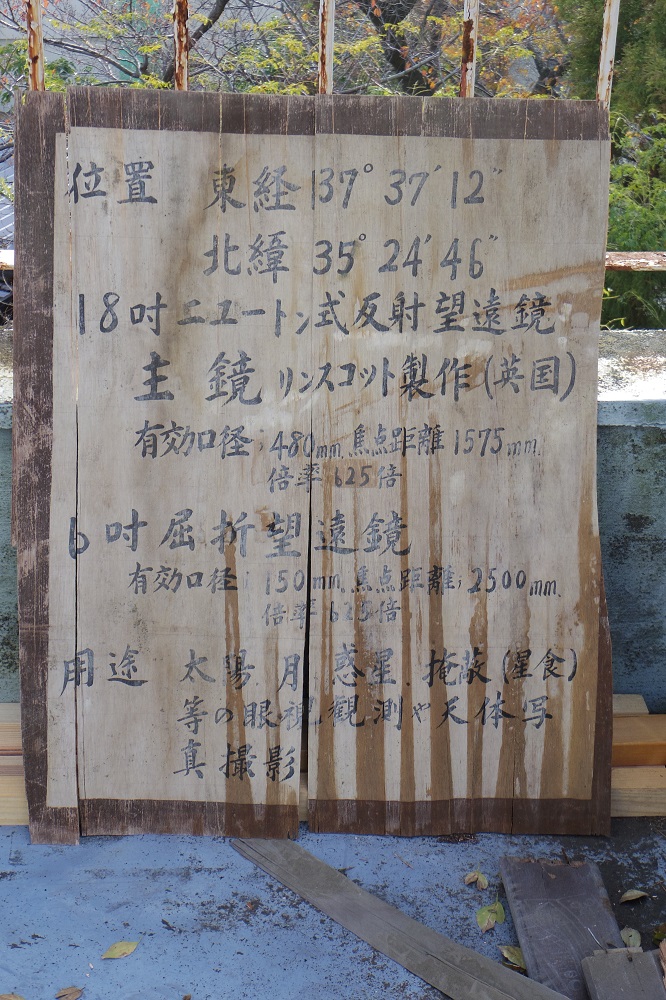 位置 東経 137° 37′ 12″
北緯 35° 24′ 46″
18吋ニュートン式反射望遠鏡
主鏡 リンスコット製作(英国)
有効口径, 480mm. 焦点距離 1575mm.
倍率 625倍
6吋屈折望遠鏡
有効口径, 150mm. 焦点距離, 2500mm.
倍率 625倍
用途 太陽. 月. 惑星. 掩蔽(星食)
等の眼視観測や天体写
真撮影